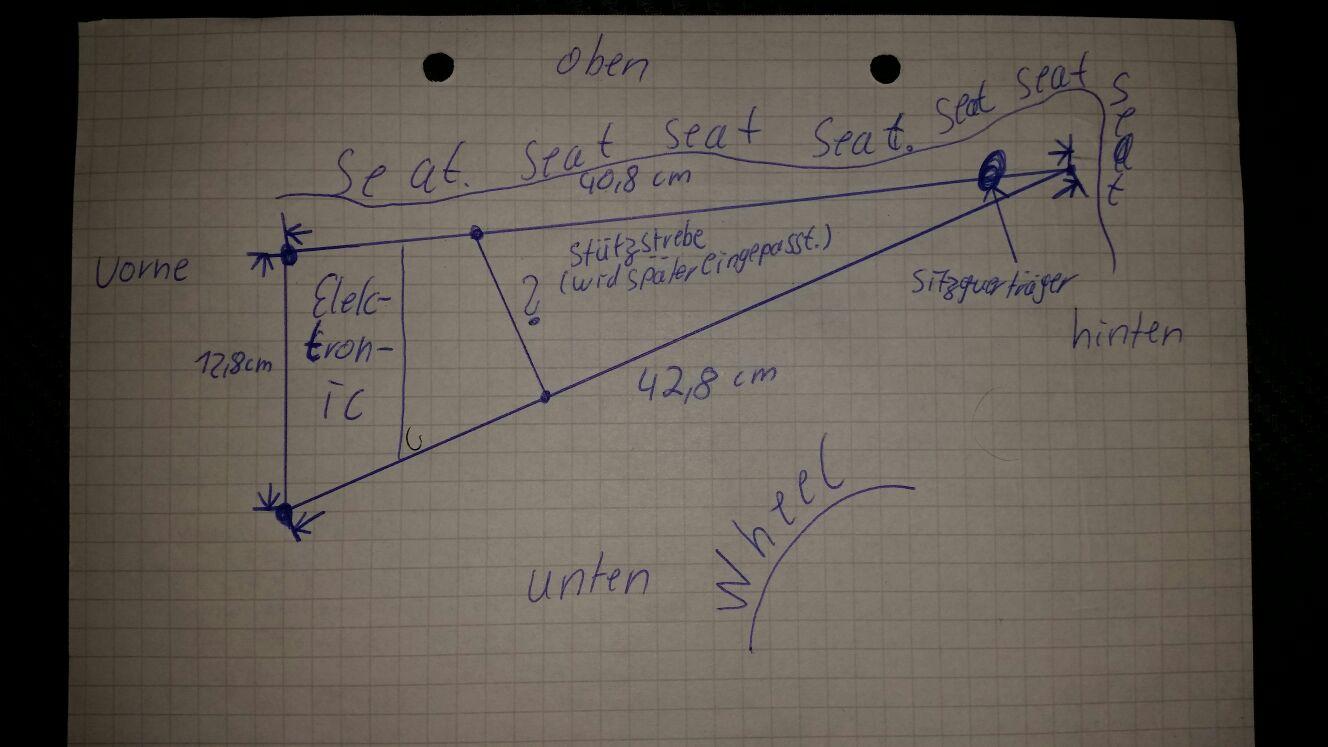 oben
Seat. Seat Seat Seat. Seat Seat Seat
40,8 cm
Vorne
Elek-
tron-
ic
Stützstrebe
(wird später eingepasst.)
?
Sitzquerträger
hinten
12,8cm
42,8 cm
Wheel
unten